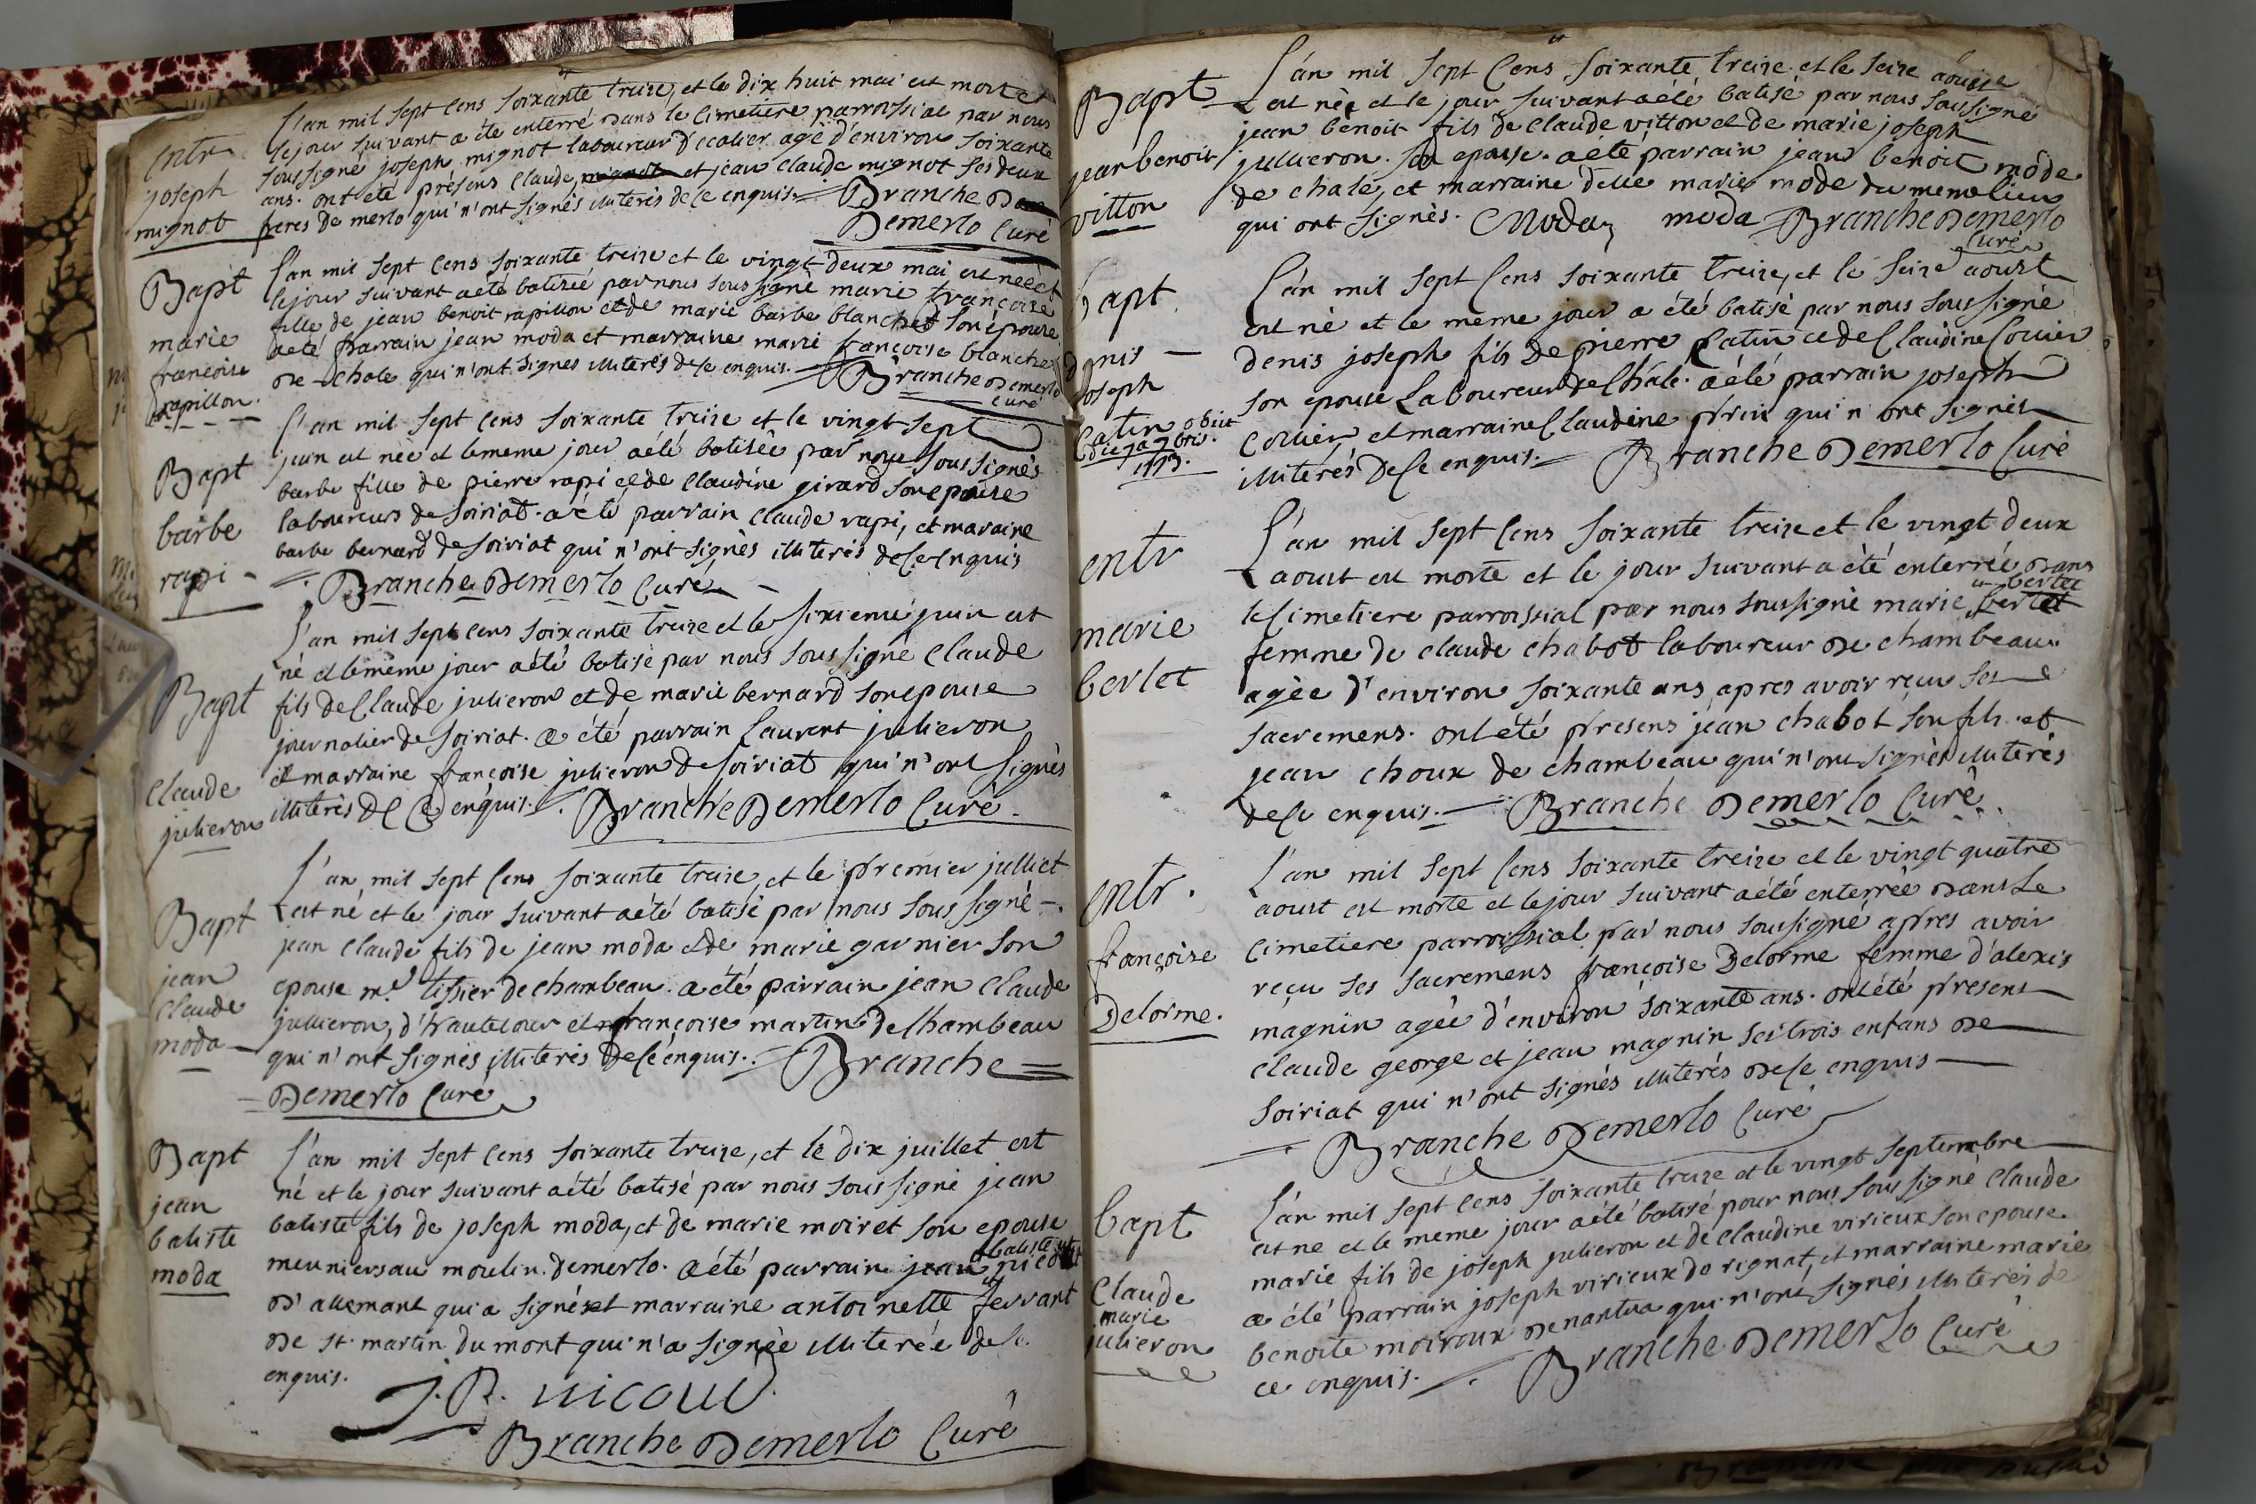 entr
joseph
mignot
L'an mil sept cens soixante treize, et le dix huit mai est mort et
le jour suivant a été enterré dans le cimetiere parroissial par nous
soussigné joseph mignot laboureur d'ecolier agé d'environ soixante
ans. ont été présens claude mignot et jean claude mignot ses deux
freres de merlo qui n'ont signés illiterés de ce enquis. Branche De
Demerlo Curé
Bapt
marie
françoise
rapillon.
L'an mil sept cens soixante treize et le vingt deux mai est neé et
le jour suivant a été batisée par nous soussigné marie françoise
fille de jean benoit rapillon et de marie barbe blanchet son épouse
a été parrain jean moda et marraine marie françoise blanchet
de chale qui n'ont signes illiterés de ce enquis. Branche Demerlo
curé
Bapt
barbe
rapi
L'an mil sept cens soixante treize et le vingt sept
juin est née et le meme jour a été batisée par nous soussignés
barbe fille de pierre rapi et de claudine girard son epouse
laboureurs de soiriat. a été parrain claude rapi, et maraine
barbe bernard de soiriat qui n'ont signés illiterés de ce enquis
Branche Demerlo Curé
Bapt
claude
julieron
L'an mil sept cens soixante treize et le sixieme juin est
né et le même jour a été batisé par nous soussigné claude
fils de Claude julieron et de marie bernard son epouse
journalier de soiriat. a été parrain laurent julieron
et marraine françoise julieron de soiriat qui n'ont signés
illiterés de ce enquis. Branche Demerlo Curé.
Bapt
jean
claude
moda
L'an mil sept cens soixante treize, et le premier julliet
est né et le jour suivant a été batisé par nous soussigné
jean claude fils de jean moda et de marie garnier son
epouse md tissier de chambeau. a été parrain jean claude
jullieron, d'hautecour et françoise martin de Chambeau
qui n'ont signés illiterés de ce enquis. Branche
Demerlo Curé
Bapt
jean
batiste
moda
L'an mil sept cens soixante treize, et le dix juillet est
né et le jour suivant a été batisé par nous soussigné jean
batiste fils de joseph moda, et de marie moiret son epouse
meuniers au moulin demerlo. a été parrain jean
batiste
d'allemant qui a signé et marraine antoinette fervant
de st. martin du mont qui n'a signée illiterée de ce
enquis.
J. B. nicoud
Branche Demerlo Curé
Bapt
jean benoit
vitton
L'an mil sept cens soixante treize et le seize aoust
est née et le jour suivant a été batisé par nous soussigné
jean bênoit fils de claude vitton et de marie joseph
jullieron. son epouse. a été parrain jean benoit mode
de chale, et marraine delle marie mode du meme lieu
qui ont signés. Moda moda Branche Demerlo
Curé
bapt
denis
joseph
Catin obiit
1773.
L'an mil sept cens soixante treize, et le seize aoust
est né et le meme jour a été batisé par nous soussigné
denis joseph fils de pierre Catin et de Claudine Collier
son epouse laboureur de Chale. a été parrain joseph
collier et marraine Claudine prin qui n'ont signés
illiterés de ce enquis. Branche Demerlo Curé
entr
marie
berlet
L'an mil sept cens soixante treize et le vingt deux
aoust est morte et le jour suivant a été enterrée dans
le Cimetiere parroissial par nous soussigné marie berlet
berlet
femme de claude chabot laboureur de chambeau
agée d'environ soixante ans, apres avoir reçu ses
sacremens. ont été presens jean chabot son fils. et
jean choux de chambeau qui n'ont signés illiterés
de ce enquis. Branche Demerlo Curé
entr.
françoise
Delorme.
L'an mil sept cens soixante treize et le vingt quatre
aoust est morte et le jour suivant a été enterrée dans le
cimetiere parroissial par nous soussigné apres avoir
reçu ses sacremens françoise Delorme femme d'alexis
magnin agée d'environ soixante ans. ont été presens
claude george et jean magnin ses trois enfans de
soiriat qui n'ont signés illiterés de ce enquis
Branche Demerlo Curé
bapt
Claude
marie
julieron
L'an mil sept cens soixante treize et le vingt septembre
est né et le meme jour a été batisé pour nous soussigné Claude
marie fils de joseph julieron et de claudine virieux son epouse
a été parrain joseph virieux do rignat, et marraine marie
benoite moiroux de nantua qui n'ont signés illiterés de
ce enquis. Branche Demerlo Curé